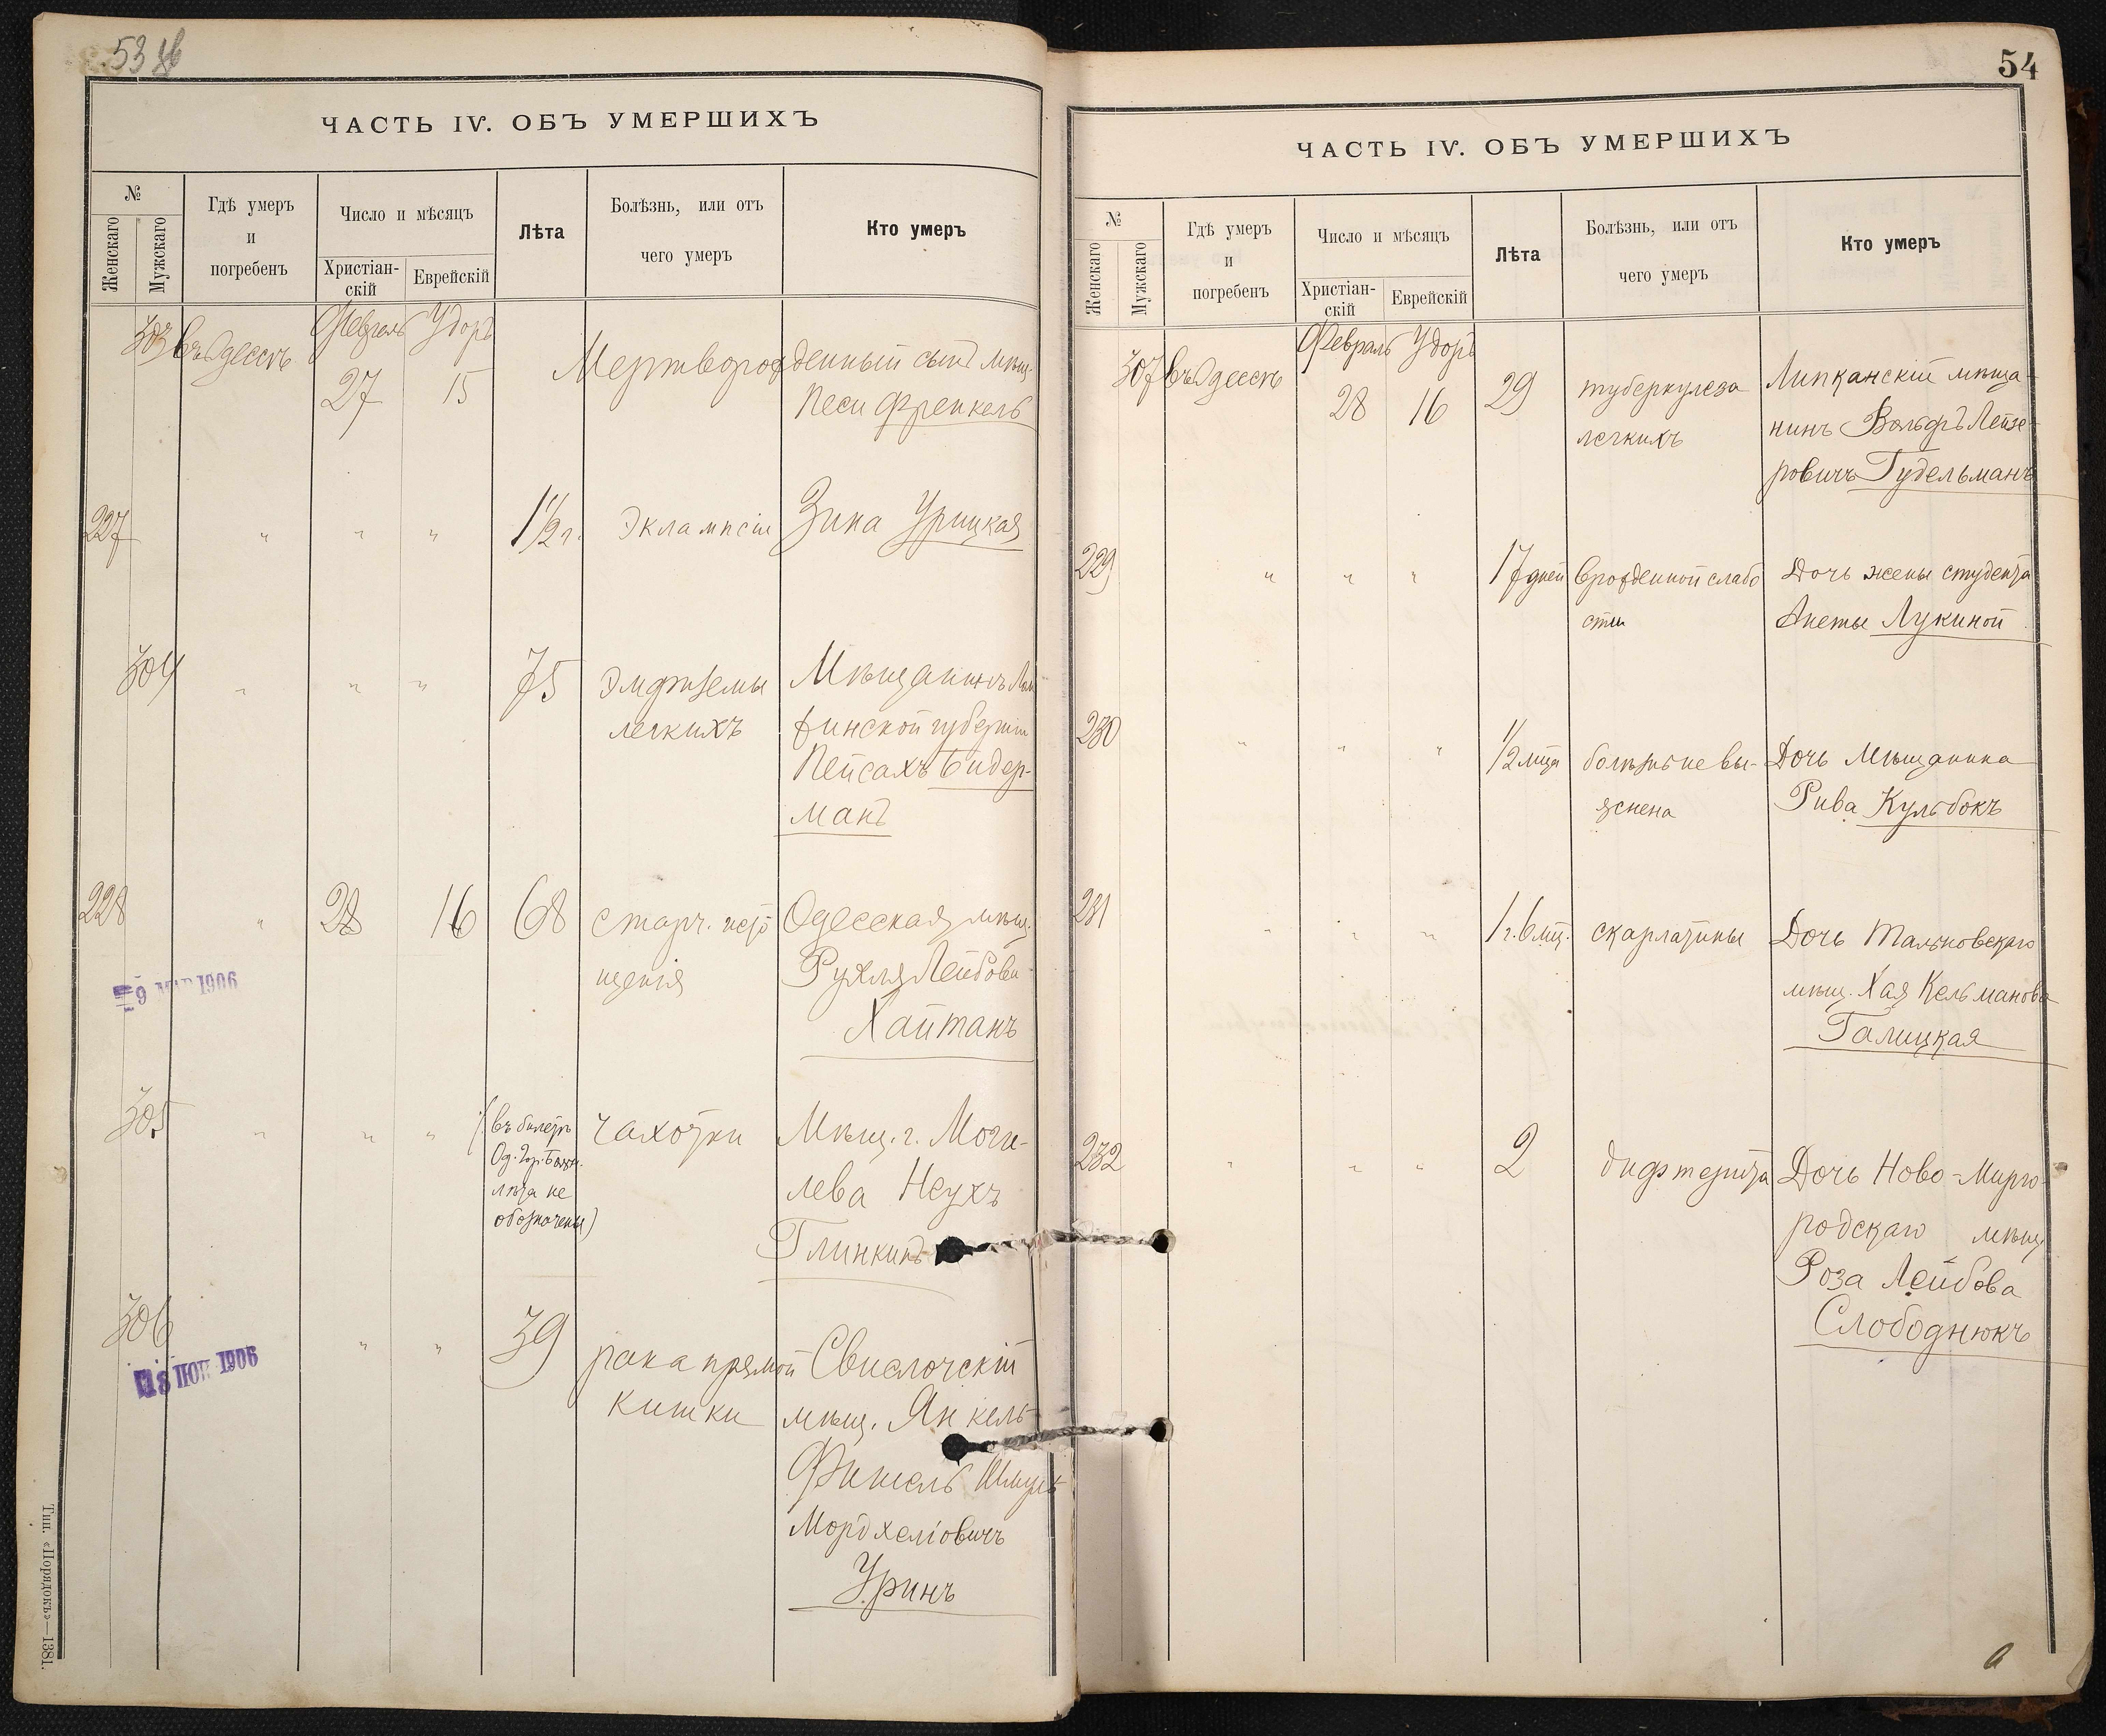 53 об
ЧАСТЬ IV. ОБЪ УМЕРШИХЪ
№
Женскаго
Мужскаго
Гдѣ умеръ
и
погребенъ
Число и мѣсяцъ
Христіан-
скій
Еврейскій
Лѣта
Болѣзнь, или отъ
чего умеръ
Кто умеръ
303 въ Одессѣ Февраль Удоръ
27 15 Мертворожденный сынъ мѣщ.
Песи Френкель
227 " " " 1 1/2 г. Эклампсіи Зина Урицкая
304 " " " 75 Эмфиземы Мѣщанинъ
легкихъ ской губерніи
Пейсахъ Бидер-
манъ
228 " 28 16 68 Старч. исто Одесская мѣщ.
щенія Рухля Лейбова
Хайтанъ
9 МАР 1906
305 " " " (въ билетѣ чахотки Мѣщ. г. Моги-
Од. Гор. Больн. лева Неухъ
лѣта не Глинкинъ
обозначены)
306 " " 39 рака прямой Свислочскій
кишки мѣщ. Янкель
Фишель Шмуль
Мордхеліовичъ
Уринъ
1906
Тип. «Порядокъ»—1381.
54
ЧАСТЬ IV. ОБЪ УМЕРШИХЪ
№
Женскаго
Мужскаго
Гдѣ умеръ
и
погребенъ
Число и мѣсяцъ
Христіан-
скій
Еврейскій
Лѣта
Болѣзнь, или отъ
чего умеръ
Кто умеръ
307 въ Одессѣ Февраль Удоръ
28 16 29 туберкулеза Липканскій мѣща-
легкихъ нинъ Вольфъ Лейзе-
ровичъ Гудельманъ
229 " " " 17 дней врожденной слабо Дочь жены студента
сти Анеты Лукиной
230 " " " 1/2 мца болѣзнь не вы- Дочь Мѣщанина
яснена Рива Кульбокъ
231 " " " 1 г. 6 мц. скарлатины Дочь Тальновскаго
мѣщ. Хая Кельманова
Галицкая
232 " " " 2 дифтерита Дочь Ново-Мирго-
родскаго мѣщ
Роза Лейбова
Слободнюкъ